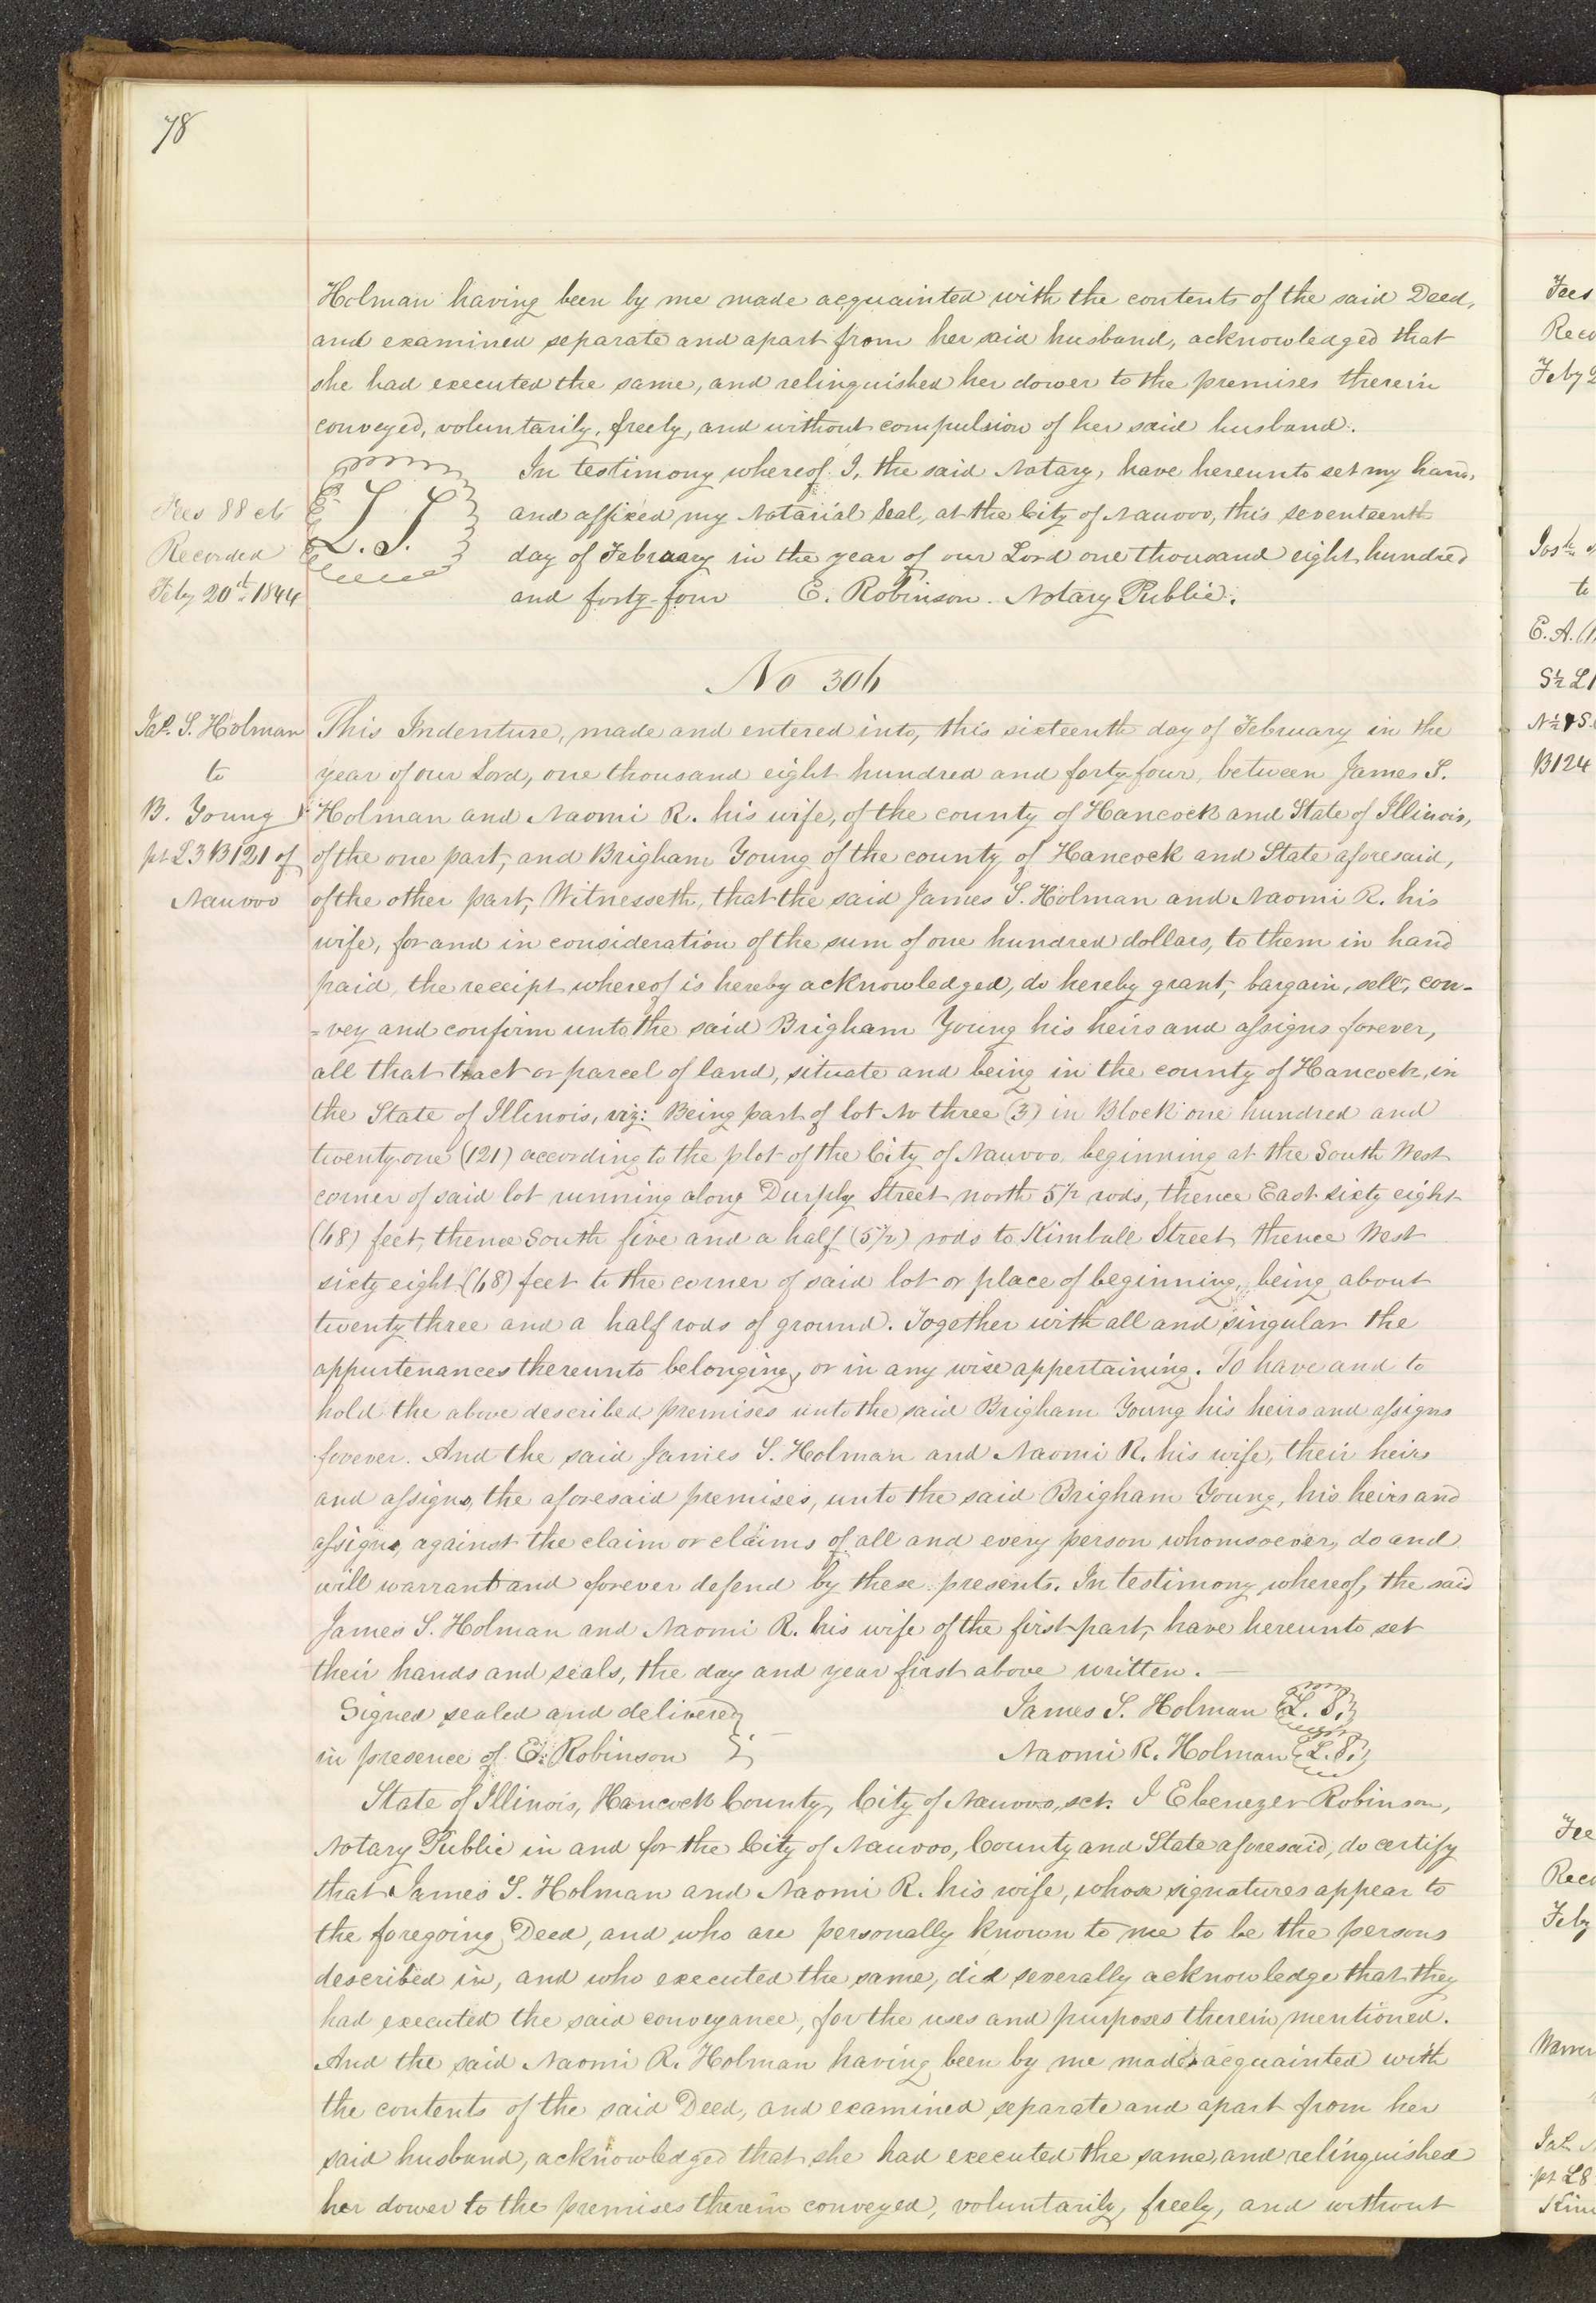 78
Holman having been by me made acquainted with the contents of the said Deed,
and examined separate and apart from her said husband, acknowledged that
she had executed the same, and relinquished her dower to the premises therein
conveyed, voluntarily, freely, and without compulsion of her said husband.
In testimony whereof I, the said Notary, have hereunto set my hand,
Fees 88 cts
L. S.
and affixed my Notarial Seal, at the City of Nauvoo, this seventeenth
Recorded
day of February in the year of our Lord one thousand eight hundred
Feby 20th 1844
and forty-four E. Robinson. Notary Public.
No 306
Jas. S. Holman
to
B. Young
pt L3 B121 of
Nauvoo
This Indenture, made and entered into, this sixteenth day of February in the
year of our Lord, one thousand eight hundred and forty four, between James S.
Holman and Naomi R. his wife, of the county of Hancock and State of Illinois,
of the one part, and Brigham Young of the county of Hancock and State aforesaid,
of the other part, Witnesseth, that the said James S. Holman and Naomi R. his
wife, for and in consideration of the sum of one hundred dollars, to them in hand
paid, the receipt whereof is hereby acknowledged, do hereby grant, bargain, sell, con-
=vey and confirm unto the said Brigham Young his heirs and assigns forever,
all that tract or parcel of land, situate and being in the county of Hancock, in
the State of Illinois, viz: Being part of lot No three (3) in Block one hundred and
twenty one (121) according to the plot of the City of Nauvoo, beginning at the South West
corner of said lot running along Durphy Street north 5½ rods, thence East sixty eight
(68) feet, thence South five and a half (5½) rods to Kimball Street, thence West
sixty eight (68) feet to the corner of said lot or place of beginning, being about
twenty three and a half rods of ground. Together with all and singular the
appurtenances thereunto belonging, or in any wise appertaining. To have and to
hold the above described premises unto the said Brigham Young his heirs and assigns
forever. And the said James S. Holman and Naomi R. his wife, their heirs
and assigns, the aforesaid premises, unto the said Brigham Young, his heirs and
assigns, against the claim or claims of all and every person whomsoever, do and
will warrant and forever defend by these presents. In testimony whereof, the said
James S. Holman and Naomi R. his wife of the first part, have hereunto set
their hands and seals, the day and year first above written.
Signed sealed and delivered James S. Holman L. S.
in presence of E. Robinson Naomi R. Holman L. S.
State of Illinois, Hancock County, City of Nauvoo, sct. I Ebenezer Robinson,
Notary Public in and for the City of Nauvoo, County and State aforesaid, do certify
that James S. Holman and Naomi R. his wife, whose signatures appear to
the foregoing Deed, and who are personally known to me to be the persons
described in, and who executed the same, did severally acknowledge that they
had executed the said conveyance, for the uses and purposes therein mentioned.
And the said Naomi R. Holman having been by me made acquainted with
the contents of the said Deed, and examined separate and apart from her
said husband, acknowledged that she had executed the same, and relinquished
her dower to the premises therein conveyed, voluntarily, freely, and without
Fees
Feby
to
E. A.
B124
Feby
pt L8